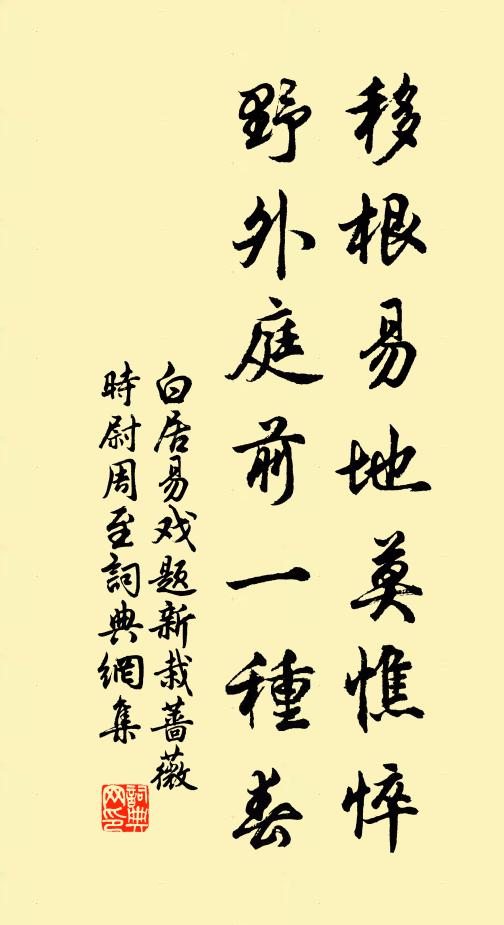 移根易地莫憔悴
野外庭前一種春
白居易戏题新栽蔷薇
時尉周至詞典網集
詞典
网印